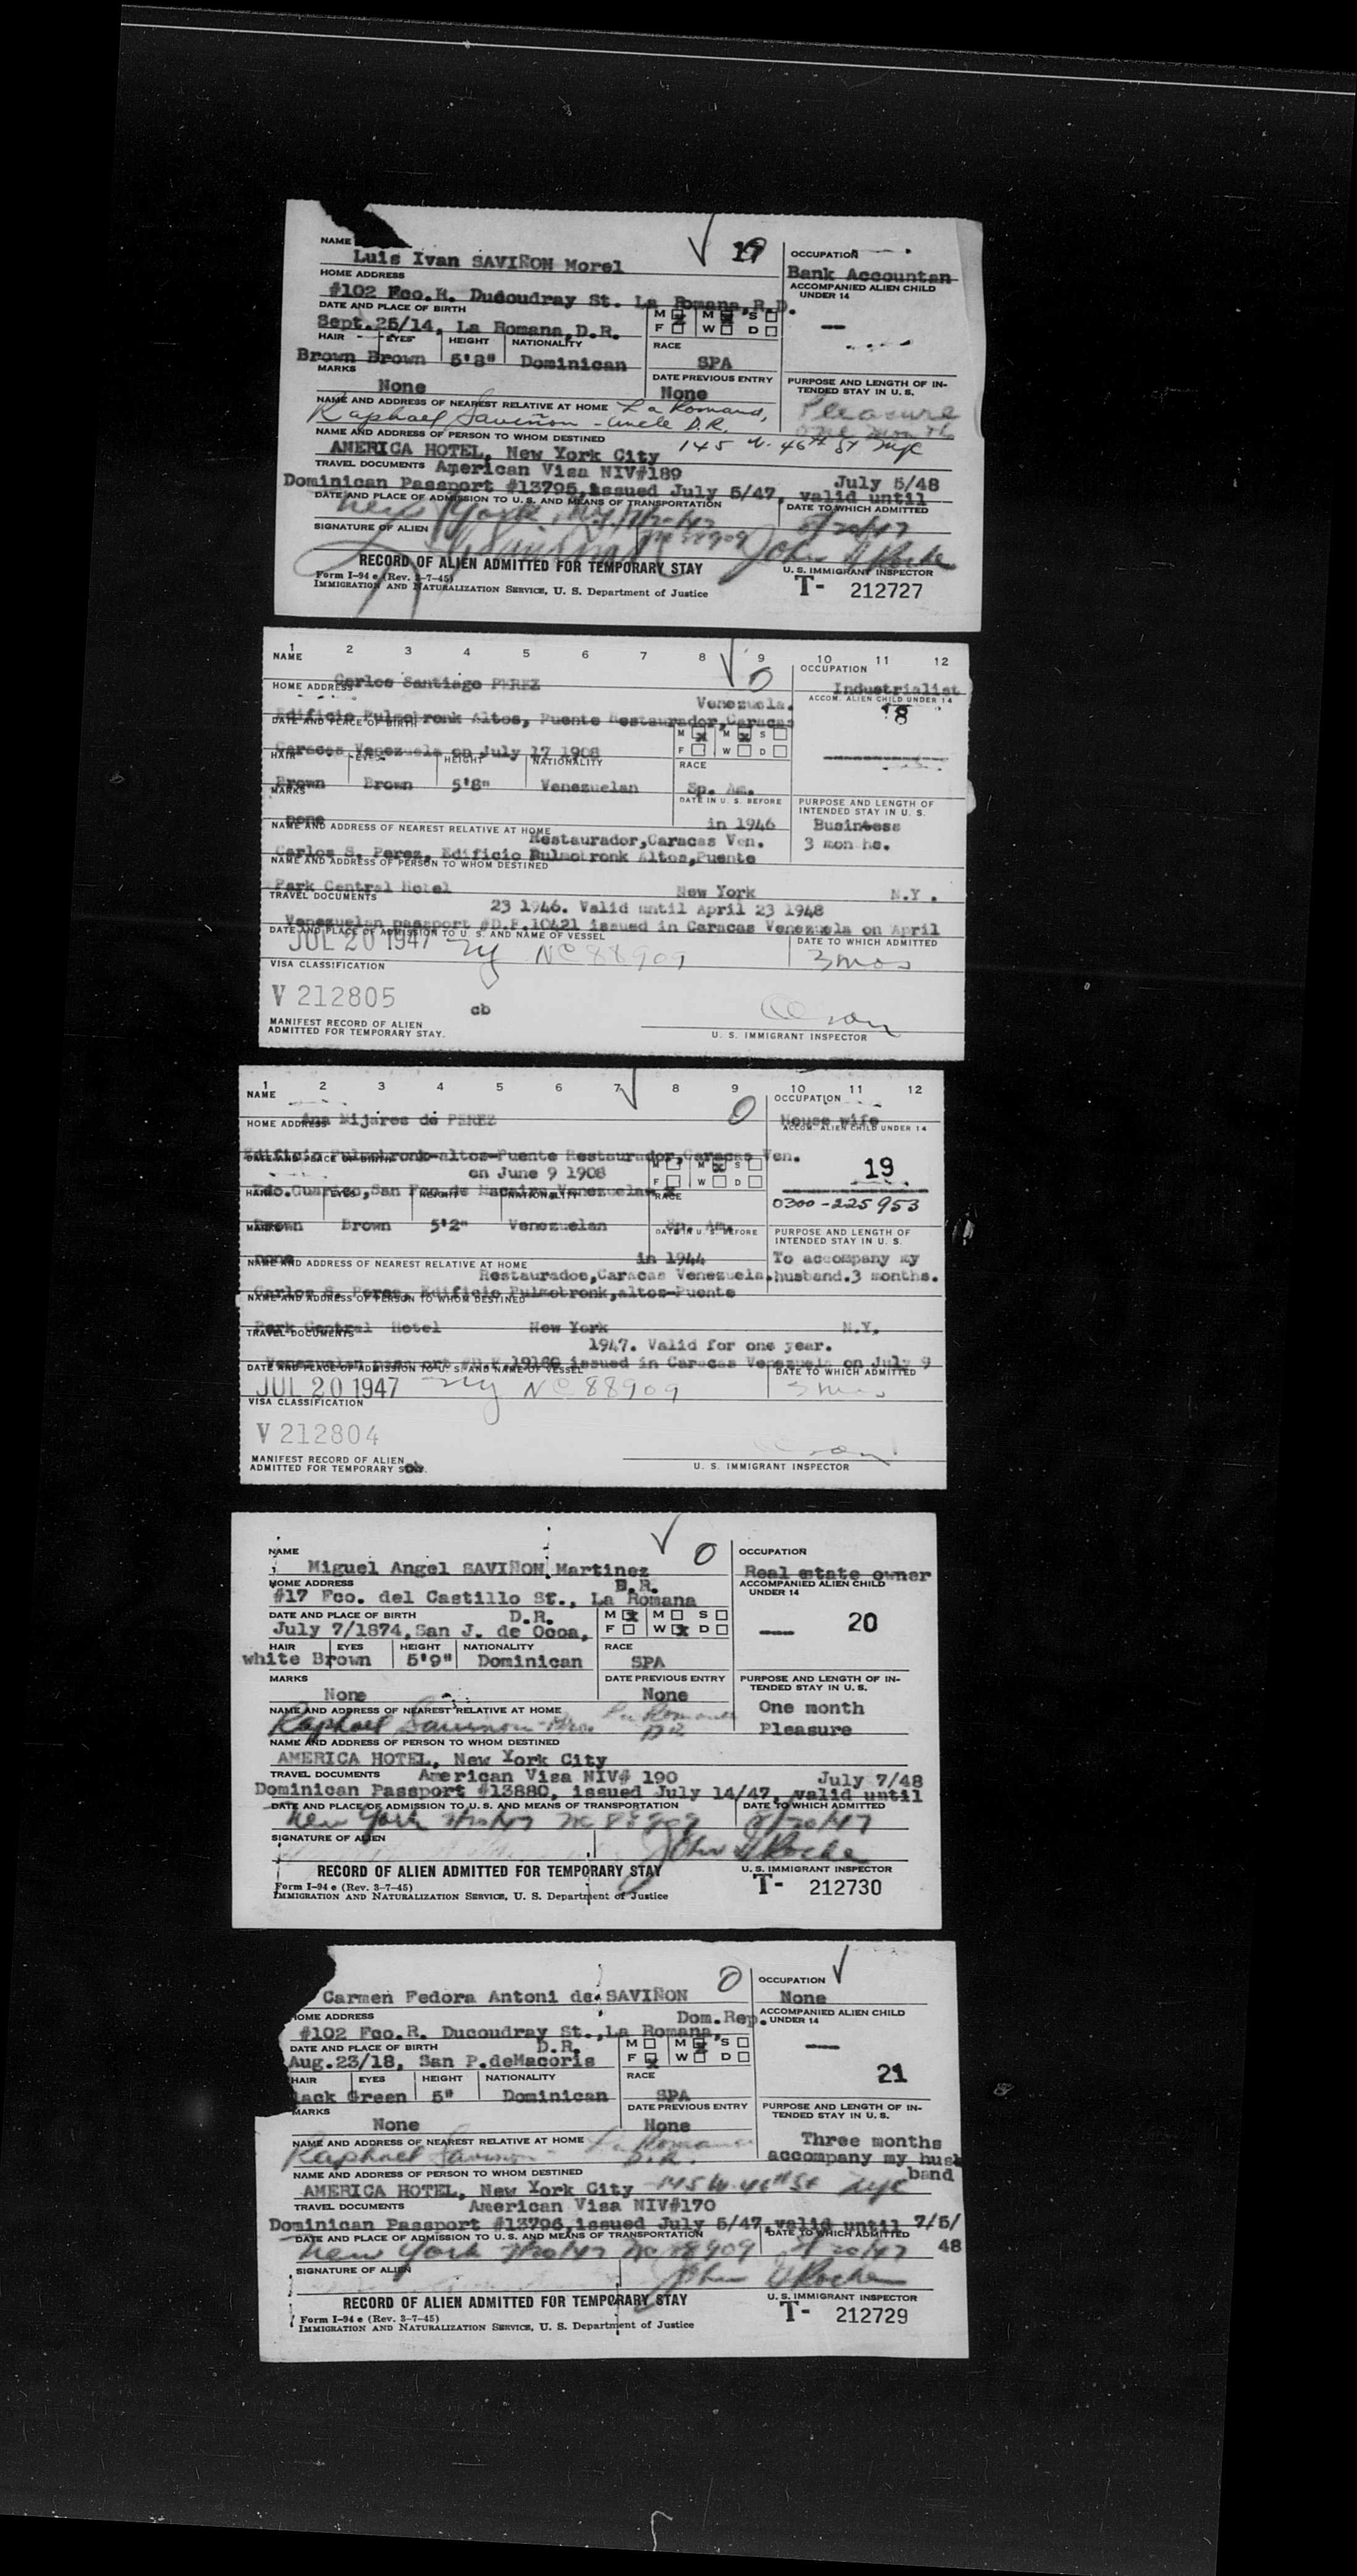 NAME
19
OCCUPATION
Luis Ivan SAVIÑON Morel
Bank Accountan
HOME ADDRESS
ACCOMPANIED ALIEN CHILD
UNDER 14
#102 Fco.R. Ducoudray St. La Romana, R.D.
DATE AND PLACE OF BIRTH
M M S
F W D
Sept.25/14, La Romana, D.R.
HAIR EYES HEIGHT NATIONALITY
RACE
Brown Brown 5'8" Dominican
SPA
MARKS
DATE PREVIOUS ENTRY
PURPOSE AND LENGTH OF IN-
TENDED STAY IN U. S.
None
None
Pleasure
one month
NAME AND ADDRESS OF NEAREST RELATIVE AT HOME La Romana,
Raphael Saviñon - uncle D.R.
NAME AND ADDRESS OF PERSON TO WHOM DESTINED
145 W. 46th St NYC
AMERICA HOTEL, New York City
TRAVEL DOCUMENTS American Visa NIV#189
July 5/48
Dominican Passport #13795, issued July 5/47, valid until
DATE AND PLACE OF ADMISSION TO U. S. AND MEANS OF TRANSPORTATION
DATE TO WHICH ADMITTED
New York, NY 7/20/47
8/20/47
SIGNATURE OF ALIEN
NC 88909
John H Roche
RECORD OF ALIEN ADMITTED FOR TEMPORARY STAY
U. S. IMMIGRANT INSPECTOR
Form I-94 e (Rev. 3-7-45)
IMMIGRATION AND NATURALIZATION SERVICE, U. S. Department of Justice
T- 212727
1 2 3 4 5 6 7 8 9 10 11 12
NAME
0
OCCUPATION
Carlos Santiago PEREZ
Industrialist
HOME ADDRESS
ACCOM. ALIEN CHILD UNDER 14
Venezuela.
18
Edificio Pulmobronk Altos, Puente Restaurador, Caracas
DATE AND PLACE OF BIRTH
M M S
F W D
Caracas Venezuela on July 17 1908
HAIR EYES HEIGHT NATIONALITY
RACE
Brown Brown 5'8" Venezuelan
Sp. Am.
MARKS
DATE IN U. S. BEFORE
PURPOSE AND LENGTH OF
INTENDED STAY IN U. S.
none
in 1946
Business
NAME AND ADDRESS OF NEAREST RELATIVE AT HOME
Restaurador, Caracas Ven.
3 mon hs.
Carlos S. Perez, Edificio Pulmobronk Altos, Puente
NAME AND ADDRESS OF PERSON TO WHOM DESTINED
Park Central Hotel New York N.Y.
TRAVEL DOCUMENTS
23 1946. Valid until April 23 1948
Venezuelan passport #D.F.10421 issued in Caracas Venezuela on April
DATE AND PLACE OF ADMISSION TO U. S. AND NAME OF VESSEL
DATE TO WHICH ADMITTED
JUL 20 1947 NY NC 88909
3 mos
VISA CLASSIFICATION
V 212805
cb
MANIFEST RECORD OF ALIEN
ADMITTED FOR TEMPORARY STAY.
U. S. IMMIGRANT INSPECTOR
1 2 3 4 5 6 7 8 9 10 11 12
NAME
0
OCCUPATION
Ana Mijares de PEREZ
House wife
HOME ADDRESS
ACCOM. ALIEN CHILD UNDER 14
Edificio Pulmobronk-altos-Puente Restaurador, Caracas Ven.
DATE AND PLACE OF BIRTH
19
on June 9 1908
M M S
F W D
Edo. Guarico, San Fco. de Macaira Venezuela
0300-225953
HAIR EYES HEIGHT NATIONALITY
RACE
Brown Brown 5'2" Venezuelan
Sp. Am.
MARKS
DATE IN U. S. BEFORE
PURPOSE AND LENGTH OF
INTENDED STAY IN U. S.
none
in 1944
To accompany my
NAME AND ADDRESS OF NEAREST RELATIVE AT HOME
Restauradoe, Caracas Venezuela. husband. 3 months.
Carlos S. Perez, Edificio Pulmobronk, altos-Puente
NAME AND ADDRESS OF PERSON TO WHOM DESTINED
Park Central Hotel New York N.Y.
TRAVEL DOCUMENTS
1947. Valid for one year.
Venezuelan passport 19180 issued in Caracas Venezuela on July 9
DATE AND PLACE OF ADMISSION TO U. S. AND NAME OF VESSEL
DATE TO WHICH ADMITTED
JUL 20 1947 NY NC 88909
3 mos
VISA CLASSIFICATION
V 212804
MANIFEST RECORD OF ALIEN
ADMITTED FOR TEMPORARY
U. S. IMMIGRANT INSPECTOR
NAME
0
OCCUPATION
Miguel Angel SAVIÑON Martinez
Real estate owner
HOME ADDRESS
D.R.
ACCOMPANIED ALIEN CHILD
UNDER 14
#17 Fco. del Castillo St., La Romana
DATE AND PLACE OF BIRTH
D.R.
M M S
F W D
20
July 7/1874, San J. de Ocoa,
HAIR EYES HEIGHT NATIONALITY
RACE
white Brown 5'9" Dominican
SPA
MARKS
DATE PREVIOUS ENTRY
PURPOSE AND LENGTH OF IN-
TENDED STAY IN U. S.
None
None
One month
NAME AND ADDRESS OF NEAREST RELATIVE AT HOME
La Romana
Raphael Savinon - Bro. D.R.
Pleasure
NAME AND ADDRESS OF PERSON TO WHOM DESTINED
AMERICA HOTEL, New York City
TRAVEL DOCUMENTS American Visa NIV# 190
July 7/48
Dominican Passport #13880, issued July 14/47, valid until
DATE AND PLACE OF ADMISSION TO U. S. AND MEANS OF TRANSPORTATION
DATE TO WHICH ADMITTED
New York 7/20/47 NC 88909
8/20/47
SIGNATURE OF ALIEN
John H Roche
RECORD OF ALIEN ADMITTED FOR TEMPORARY STAY
U. S. IMMIGRANT INSPECTOR
Form I-94 e (Rev. 3-7-45)
IMMIGRATION AND NATURALIZATION SERVICE, U. S. Department of Justice
T- 212730
0
OCCUPATION
Carmen Fedora Antoni de SAVIÑON
None
HOME ADDRESS
Dom.Rep.
ACCOMPANIED ALIEN CHILD
UNDER 14
#102 Fco.R. Ducoudray St., La Romana,
DATE AND PLACE OF BIRTH
D.R.
M M S
F W D
Aug.23/18, San P.deMacoris
21
HAIR EYES HEIGHT NATIONALITY
RACE
lack Green 5" Dominican
SPA
MARKS
DATE PREVIOUS ENTRY
PURPOSE AND LENGTH OF IN-
TENDED STAY IN U. S.
None
None
Three months
NAME AND ADDRESS OF NEAREST RELATIVE AT HOME La Romana
Raphael Savinon D.R.
accompany my hus
band
NAME AND ADDRESS OF PERSON TO WHOM DESTINED
AMERICA HOTEL, New York City 145 W. 46th St NYC
TRAVEL DOCUMENTS American Visa NIV#170
Dominican Passport #13796, issued July 5/47, valid until 7/5/
48
DATE AND PLACE OF ADMISSION TO U. S. AND MEANS OF TRANSPORTATION
DATE TO WHICH ADMITTED
New York 7/20/47 NC 88909
8/20/47
SIGNATURE OF ALIEN
John H Roche
RECORD OF ALIEN ADMITTED FOR TEMPORARY STAY
U. S. IMMIGRANT INSPECTOR
Form I-94 e (Rev. 3-7-45)
IMMIGRATION AND NATURALIZATION SERVICE, U. S. Department of Justice
T- 212729